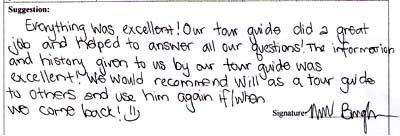 Suggestion:
Everything was excellent! Our tour guide did a great
job and helped to answer all our questions! The information
and history given to us by our tour guide was
excellent! We would recommend Will as a tour guide
to others and use him again if/when
we come back! :)
Signature